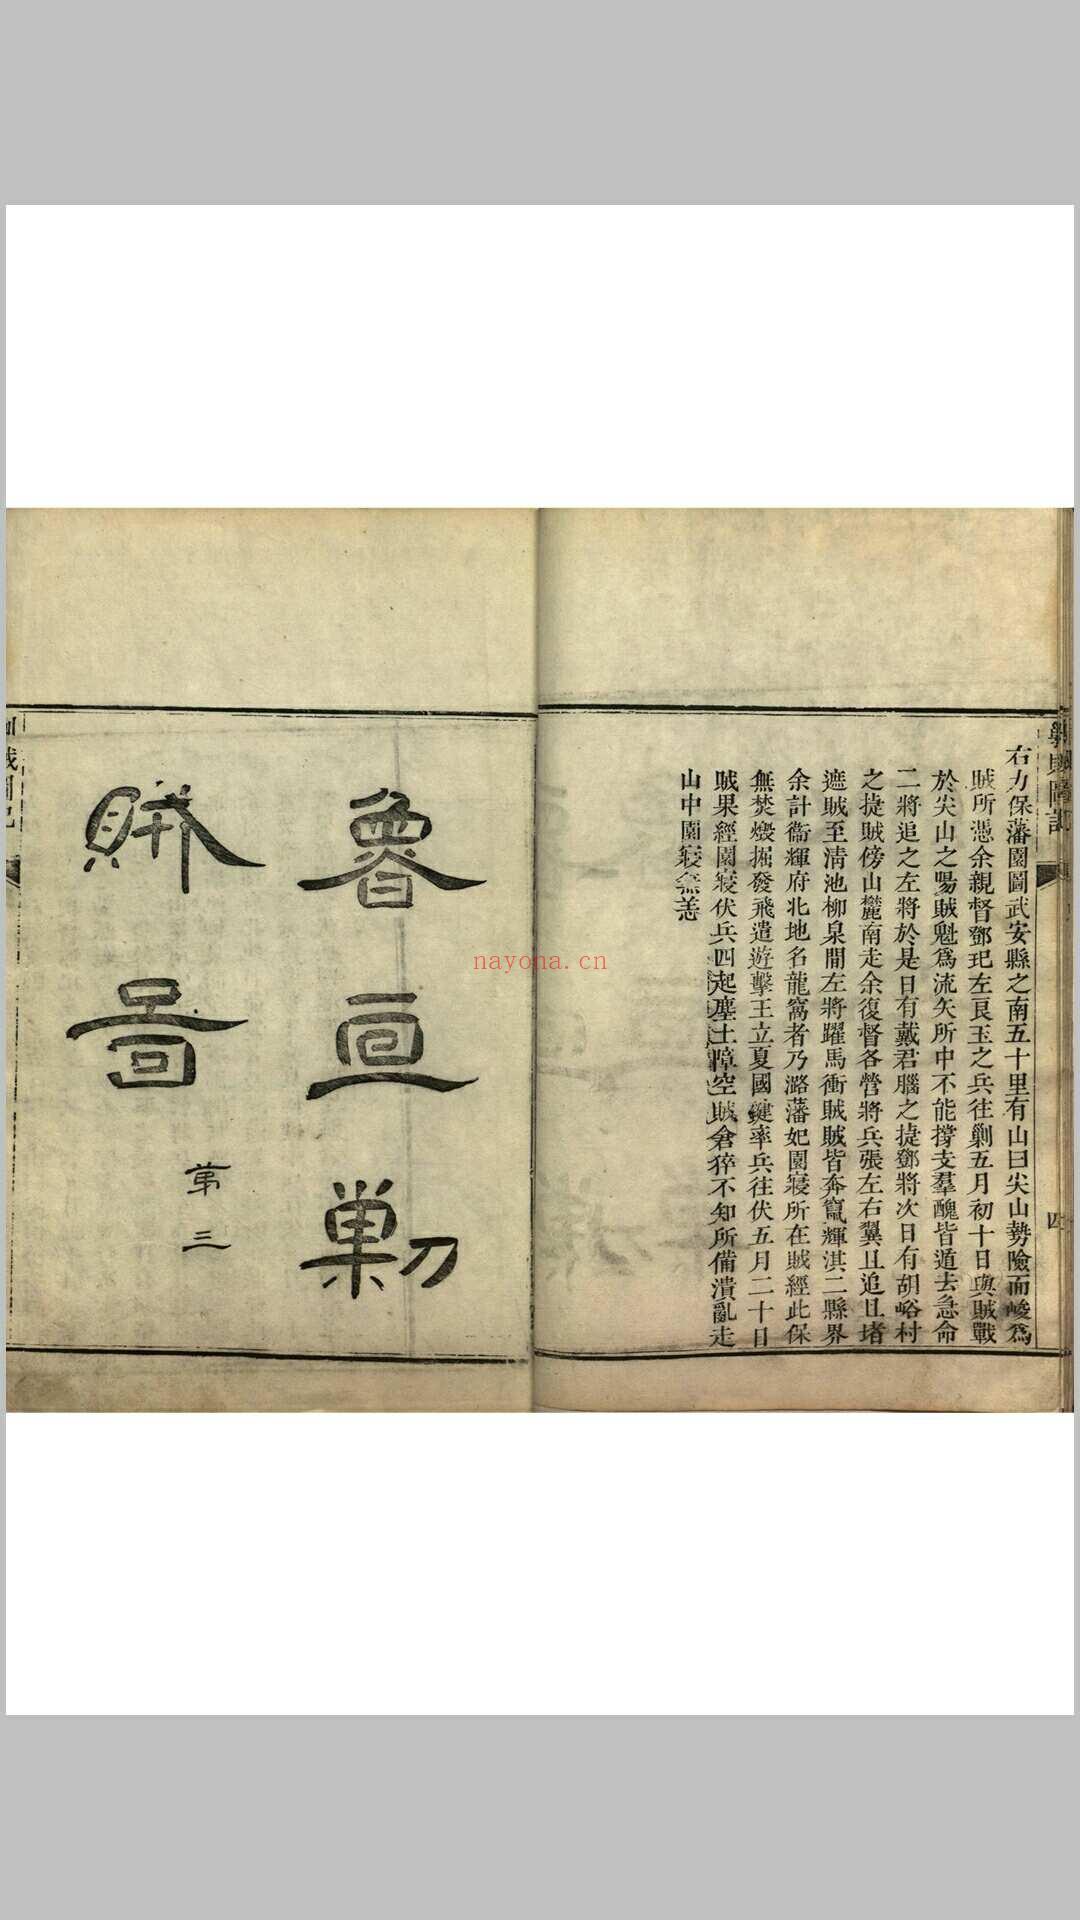 剿賊圖記
四
右力保藩園圖武安縣之南五十里有山曰尖山勢險而峻爲
賊所憑余親督鄧玘左良玉之兵往剿五月初十日與賊戰
於尖山之陽賊魁爲流矢所中不能撐支羣醜皆遁去急命
二將追之左將於是日有戴君腦之捷鄧將次日有胡峪村
之捷賊傍山麓南走余復督各營將兵張左右翼且追且堵
遮賊至清池柳泉間左將躍馬衝賊賊皆奔竄輝淇二縣界
余計衞輝府北地名龍窩者乃潞藩妃園寢所在賊經此保
無焚燬掘發飛遣遊擊王立夏國鍵率兵往伏五月二十日
賊果經園寢伏兵四起塵土障空賊倉猝不知所備潰亂走
山中園寢無恙
魯亘剿
賊圖
第三
剿賊圖記
nayona.cn